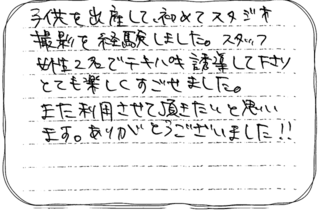 子供を出産して、初めてスタジオ
撮影を経験しました。スタッフ
女性2名でテキパキ誘導して下さり
とても楽しくすごせました。
また利用させて頂きたいと思い
ます。ありがとうございました!!